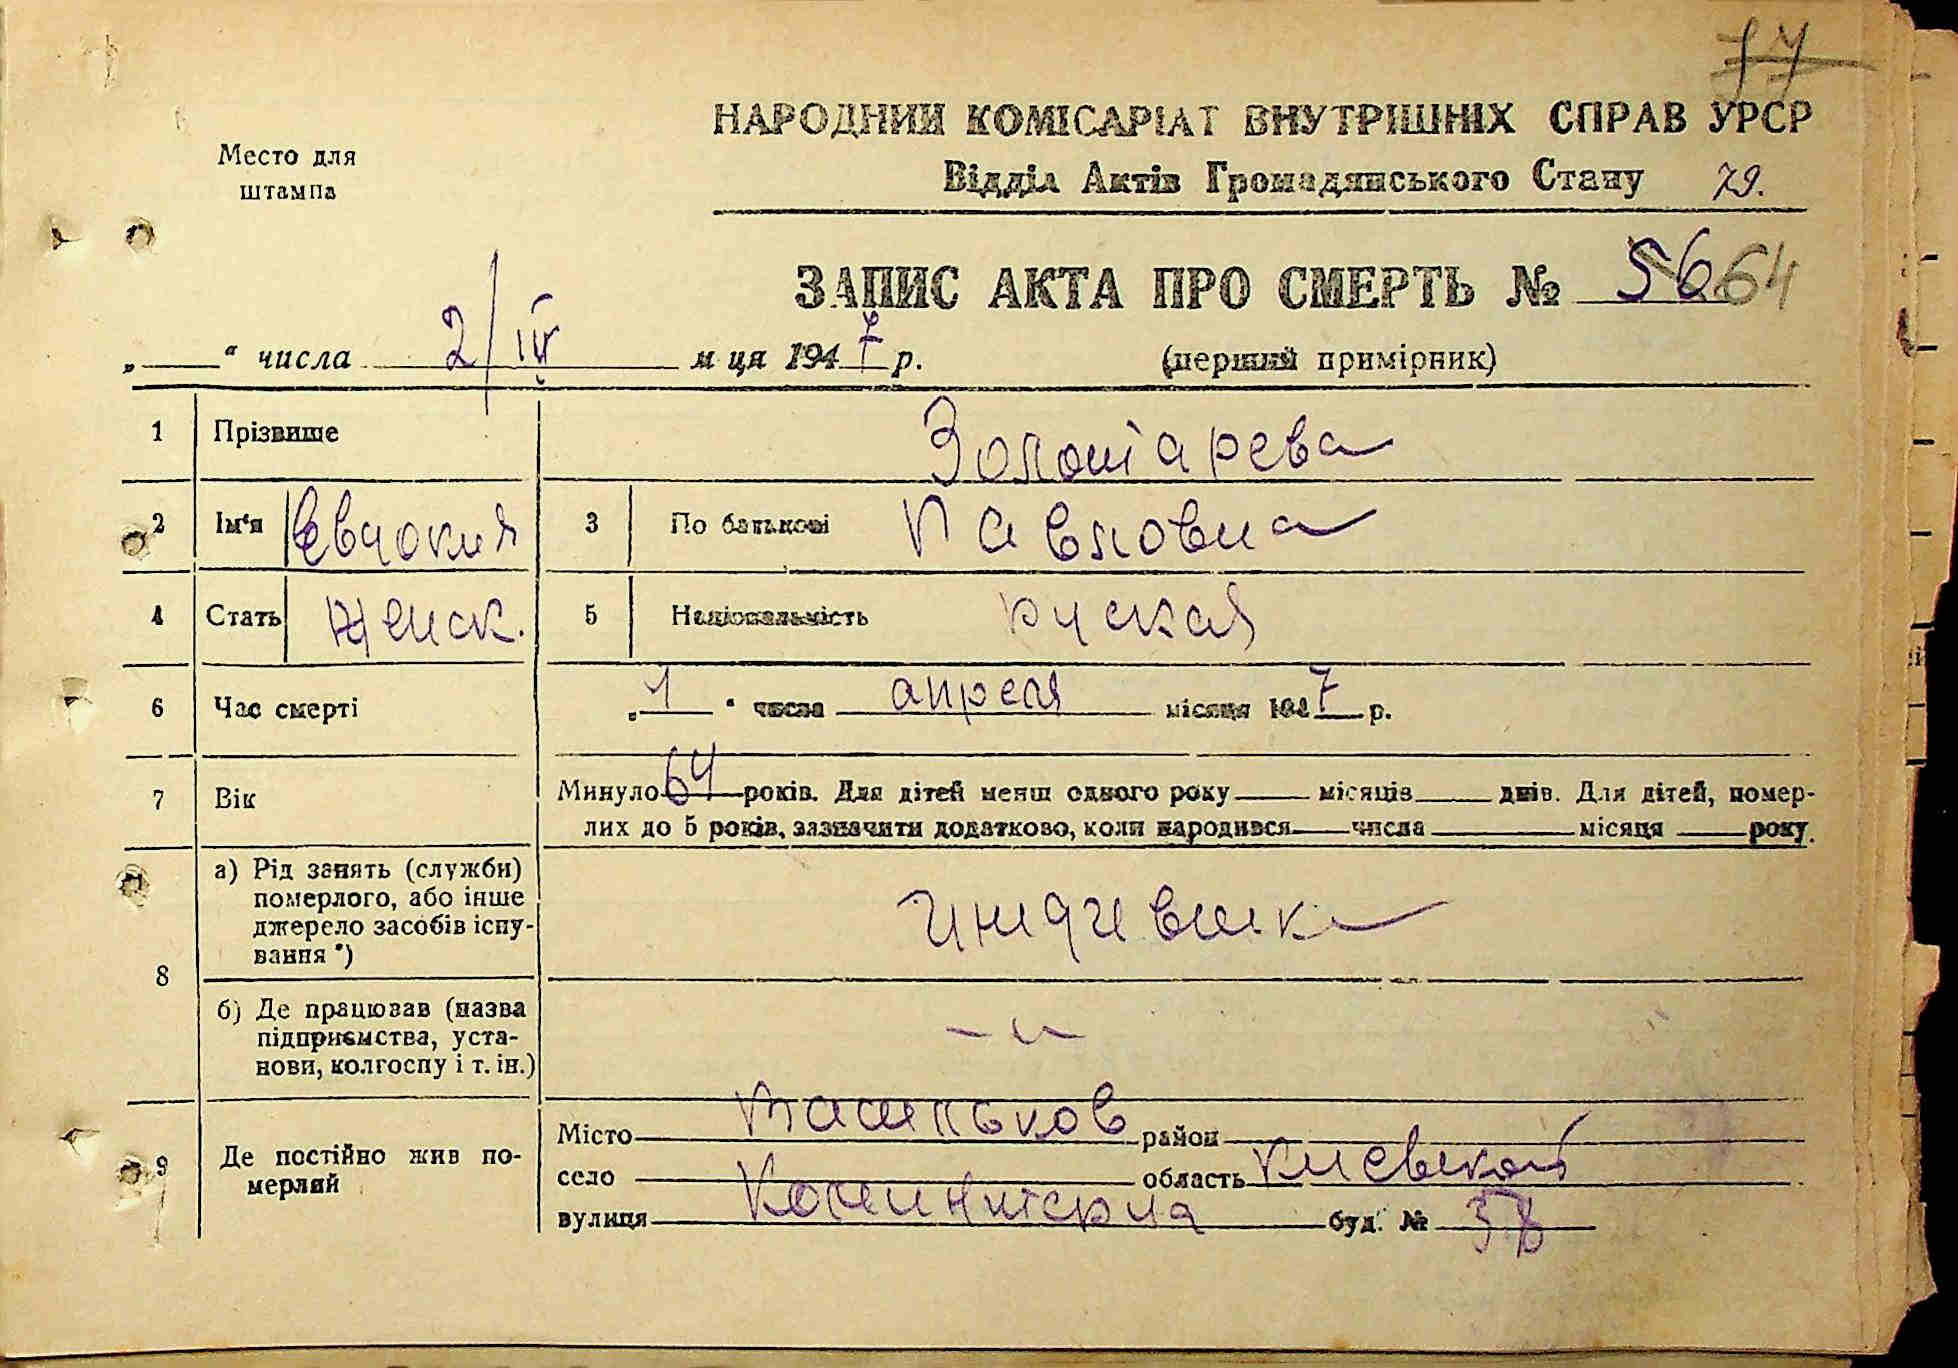 77
НАРОДНИЙ КОМІСАРІАТ ВНУТРІШНІХ СПРАВ УРСР
Место для
штампа
Відділ Актів Громадянського Стану 79.
ЗАПИС АКТА ПРО СМЕРТЬ № 56 64
„ “ числа 2/IV м ця 1947 р. (перший примірник)
1 Прізвище Золотарева
2 Ім'я Евдокия 3 По батькові Павловна
4 Стать женск. 5 Національність руская
6 Час смерті „1“ числа апреля місяця 1947 р.
7 Вік Минуло 64 років. Для дітей менш одного року місяців днів. Для дітей, помер-
лих до 5 років, зазначити додатково, коли народився числа місяця року.
8 а) Рід занять (служби)
померлого, або інше
джерело засобів існу-
вання *)
иждивенка
б) Де працював (назва
підприємства, уста-
нови, колгоспу і т. ін.)
9 Де постійно жив по-
мерлий
Місто район
село область Киевской
вулиця Коминтерна буд. № 38